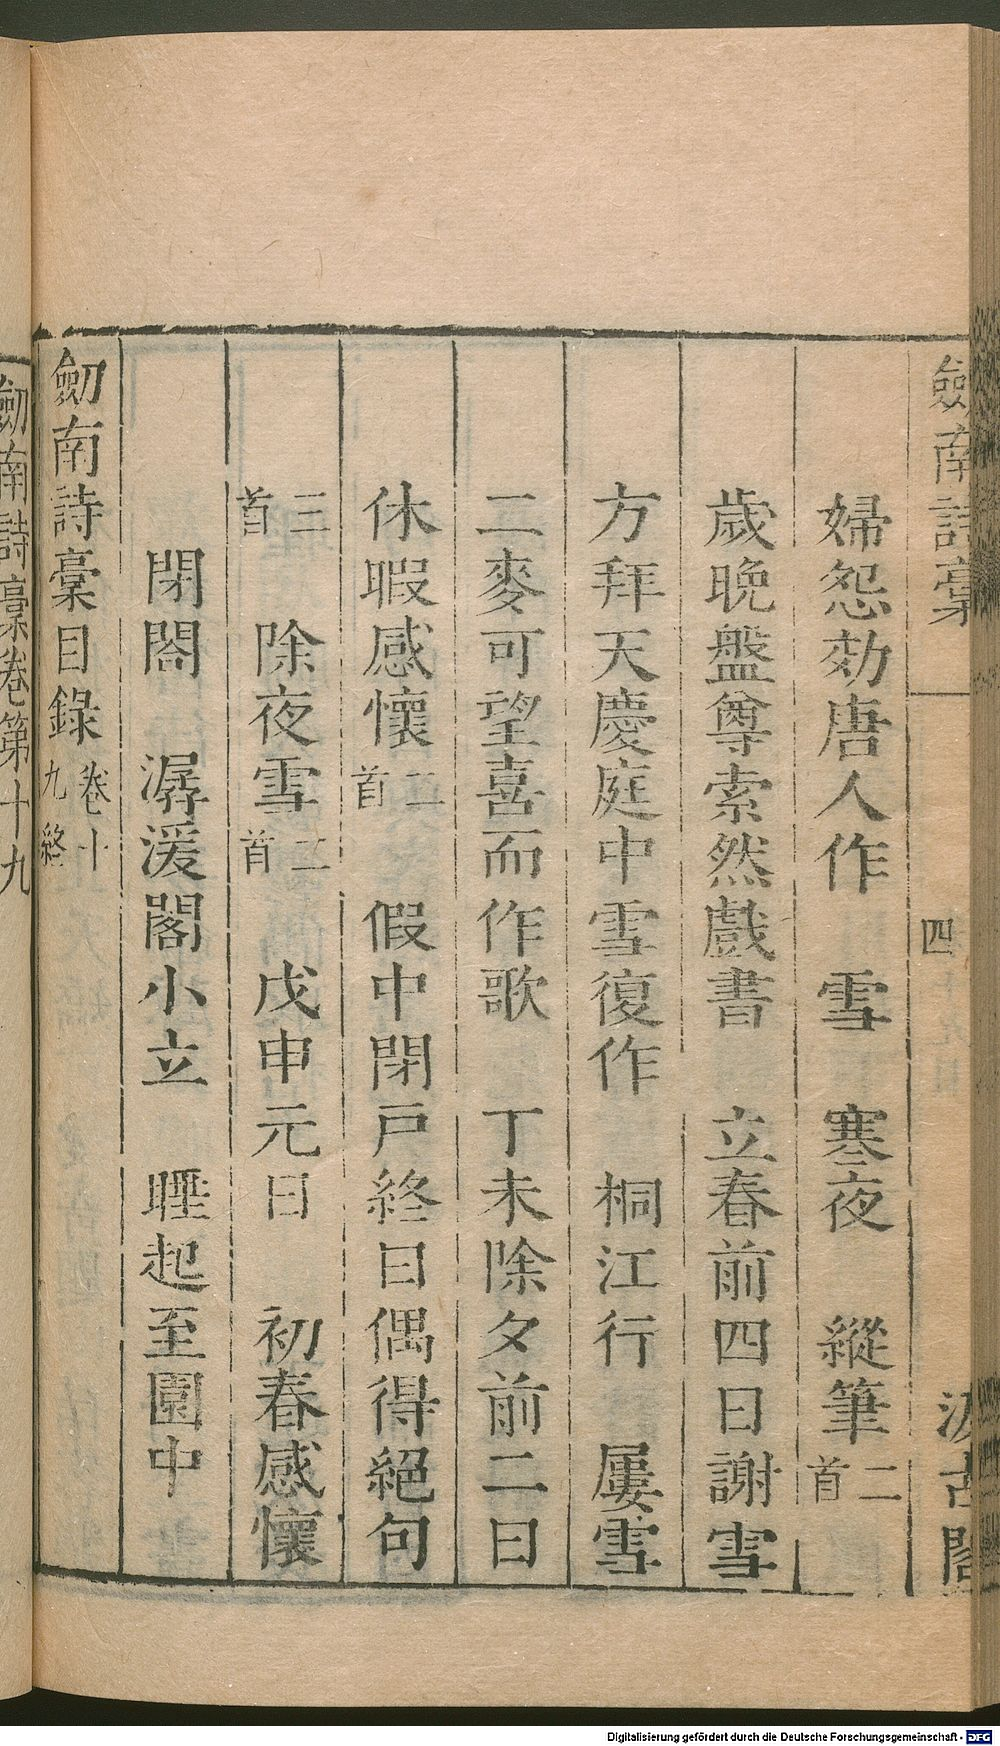 劒南詩稾
四
汲古閣
婦怨効唐人作　雪　寒夜　縱筆二首
歲晚盤尊索然戲書　立春前四日謝雪
方拜天慶庭中雪復作　桐江行　屢雪
二麥可望喜而作歌　丁未除夕前二日
休暇感懷二首　假中閉戶終日偶得絕句
三首　除夜雪二首　戊申元日　初春感懷
閉閤　潺湲閣小立　睡起至園中
劒南詩稾目錄卷十九終
劒南詩稾卷第十九
Digitalisierung gefördert durch die Deutsche Forschungsgemeinschaft - DFG